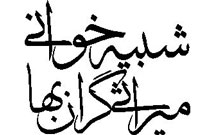 شبیه خوانی
میراثی گران بها